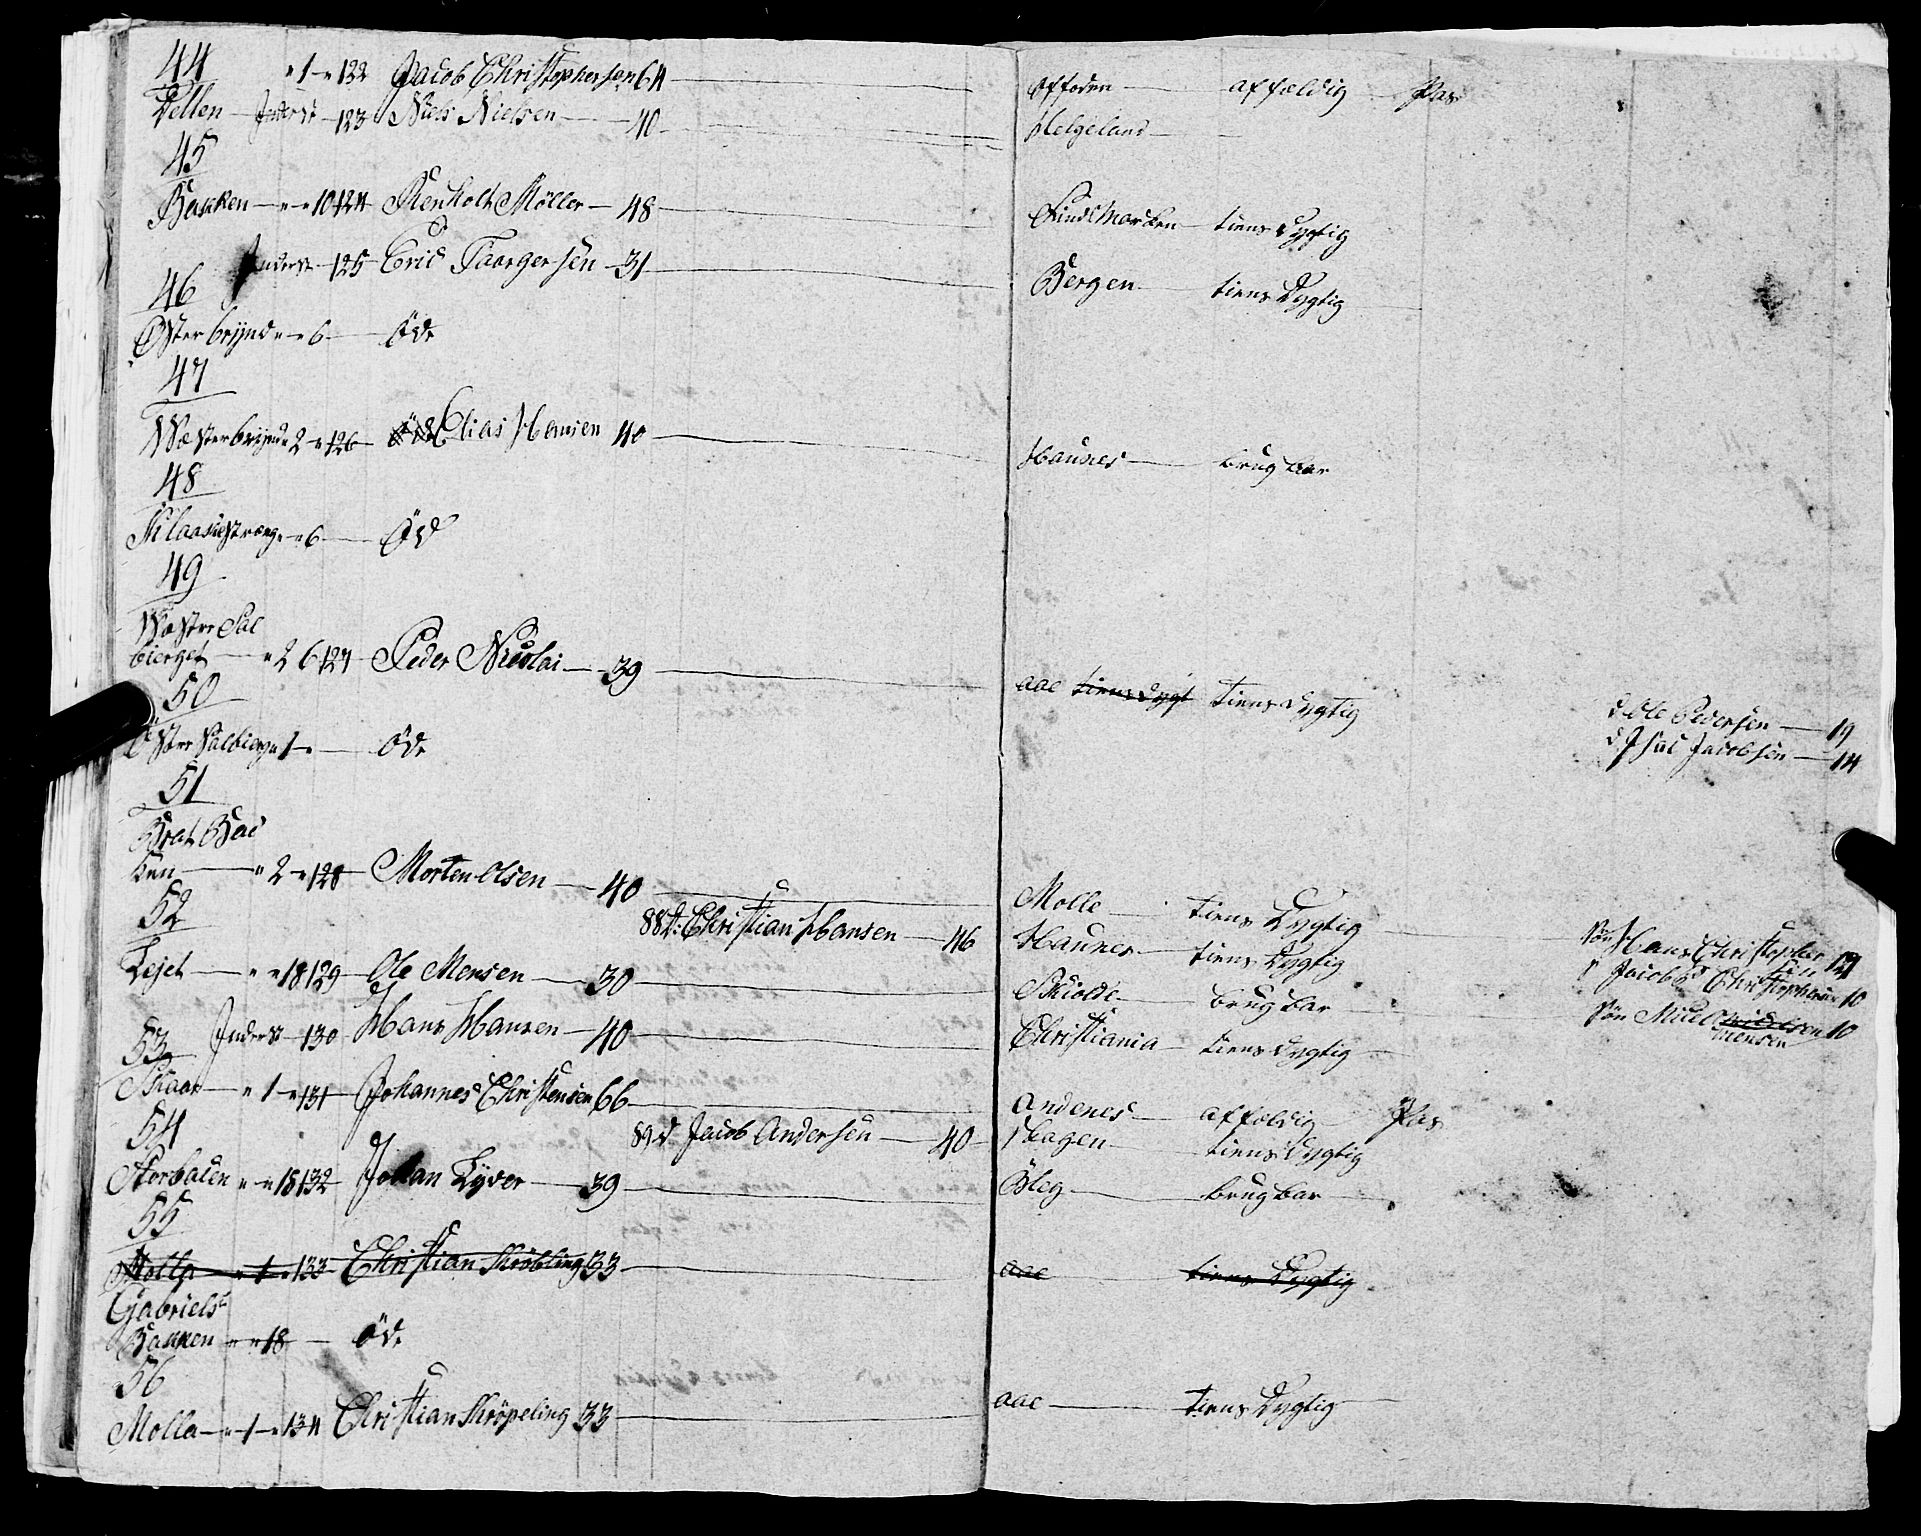 44
" 1 " 122 Jacob Christophersen 64 — Offoden — affældig — Pas
Vellen — Inderst — 123 Niels Nielsen — 40 — Helgeland —
45
Bakken — " " 10 124 Renholt Möller — 48 — Findmarken — tiens Dygtig
Inderst — 125 Eric Taarger sen — 31 — Bergen — tiens Dygtig
46
Öster brynd " " 6 — Öde
47
Wæster brynd " 2 " 126 Elias Hansen 40 — Haunes — brugbar
48
" " 6 — Öd
49
Wæstre Sal
bierget — " 2 6 127 Peder Nicolai — 39 — aae tiens dygt tiens Dygtig
50
d Ole Pedersen — 19
Östre Salbierg " 1 " — Öde
d Isac Jacobsen — 14
51
Brat Bac
ken — " 2 " 128 Morten Olsen — 40 — Molle — tiens Dygtig
52
88 d: Christian Hansen — 46 Haunes — tiens Dygtig — Sön Hans Christopher sen 12
Lejet — " " 18 129 Ole Mensen — 30 — Skiolde — brugbar — Jacob Christophersen 10
Inderst — 130 Hans Hansen — 40 — Christiania — tiens Dygtig — Sön Micel Mensen 10
53
Skaar — " 1 " 131 Johannes Christensen 66 — Andenes — affældig — Pas
54
89 d Jacob Andersen — 40 Skagen — tiens Dygtig
Storbacen " " 18 132 Johan Kyver — 39 — Öleg — brugbar
55
Molla " 1 " 133 Christian Skröbling 33 — aae tiens Dygtig
Gabriels
Bakken " " 18 — Öde
56
Molla — " 1 " 134 Christian Skröpeling 33 — aae — tiens Dygtig